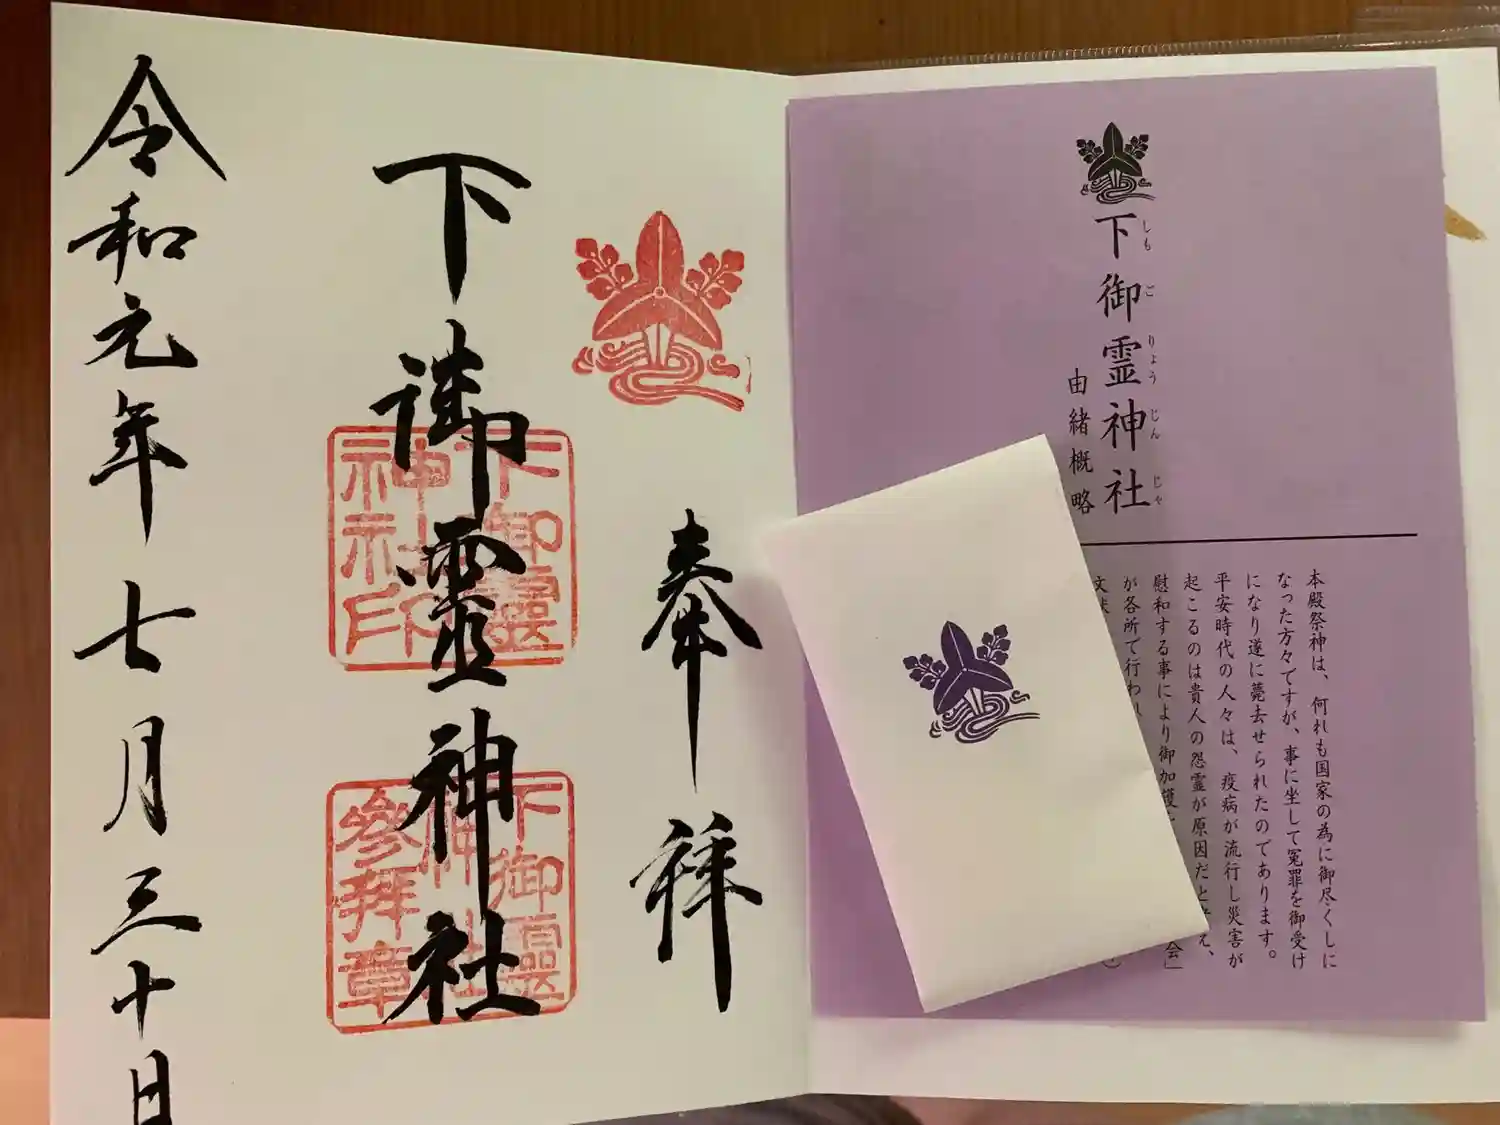 下御霊神社
しもごりょうじんじゃ
由緒概略
本殿祭神は、何れも国家の為に御尽くしに
なった方々ですが、事に坐して冤罪を御受け
になり遂に薨去せられたのであります。
平安時代の人々は、疫病が流行し災害が
起こるのは貴人の怨霊が原因だと考え、
慰和する事により御加護 会」
が各所で行われ
奉拝
下御霊神社
下御靈神社印
下御靈神社參拜章
令和元年七月三十日